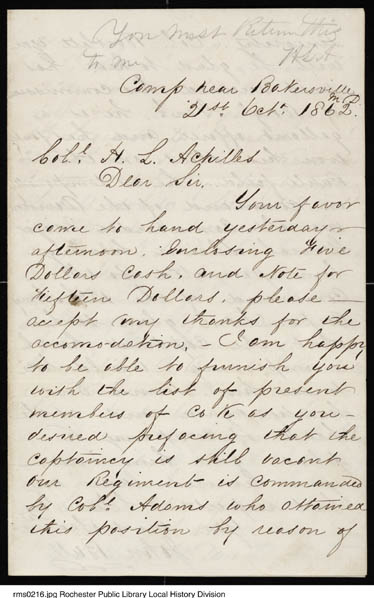 You must Return this
to me
Camp near Bakersville
Md.
21st Octr. 1862.
Colo. H. L. Achilles
Dear Sir.
Your favor
came to hand yesterday
afternoon. Enclosing Five
Dollars Cash. and Note for
Fifteen Dollars. please
accept my thanks for the
accomodation. - I am happy
to be able to furnish you
with the list of present
members of Co E as you
desired prefacing that the
captaincy is still vacant
our Regiment is commanded
by Colo. Adams who attained
this position by reason of
rms0216.jpg Rochester Public Library Local History Division